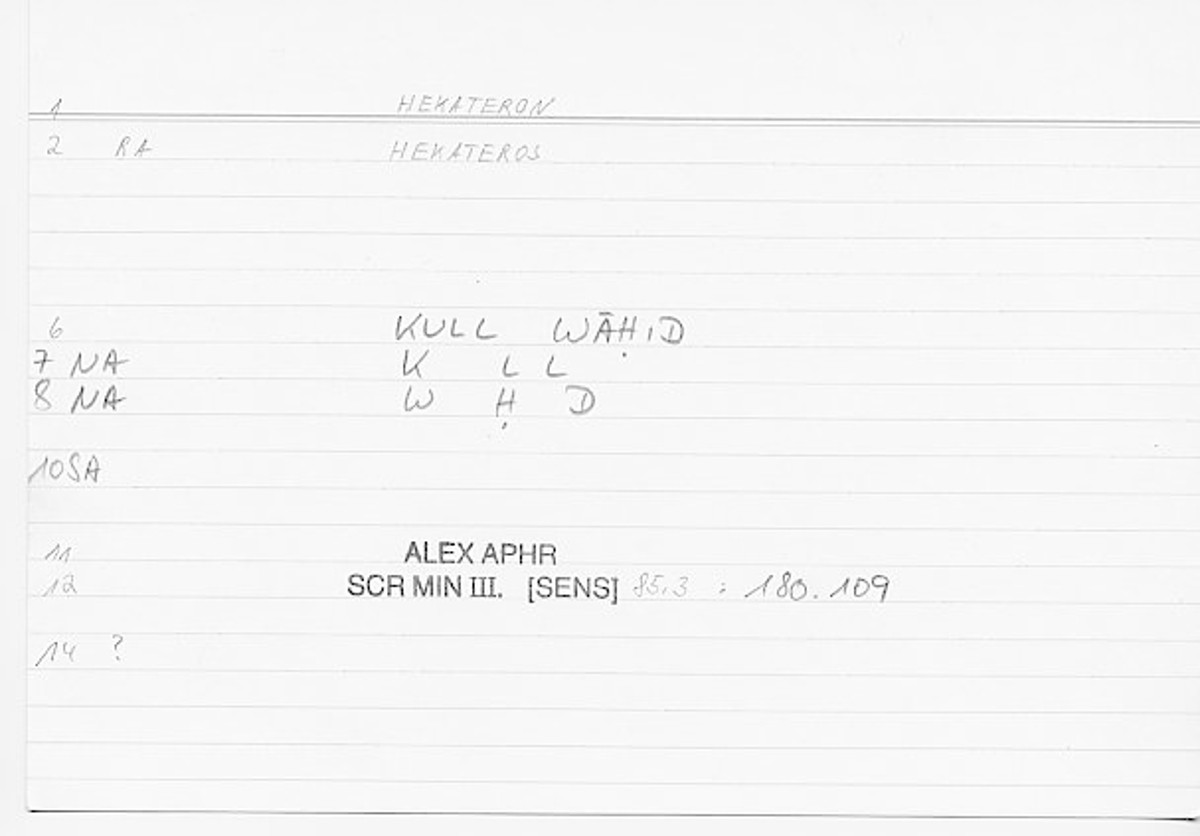 1 HEKATERON
2 RA HEKATEROS
6 KULL WĀḤID
7 NA K L L
8 NA W Ḥ D
10 SA
11 ALEX APHR
12 SCR MIN III. [SENS] 85,3 : 180.109
14 ?